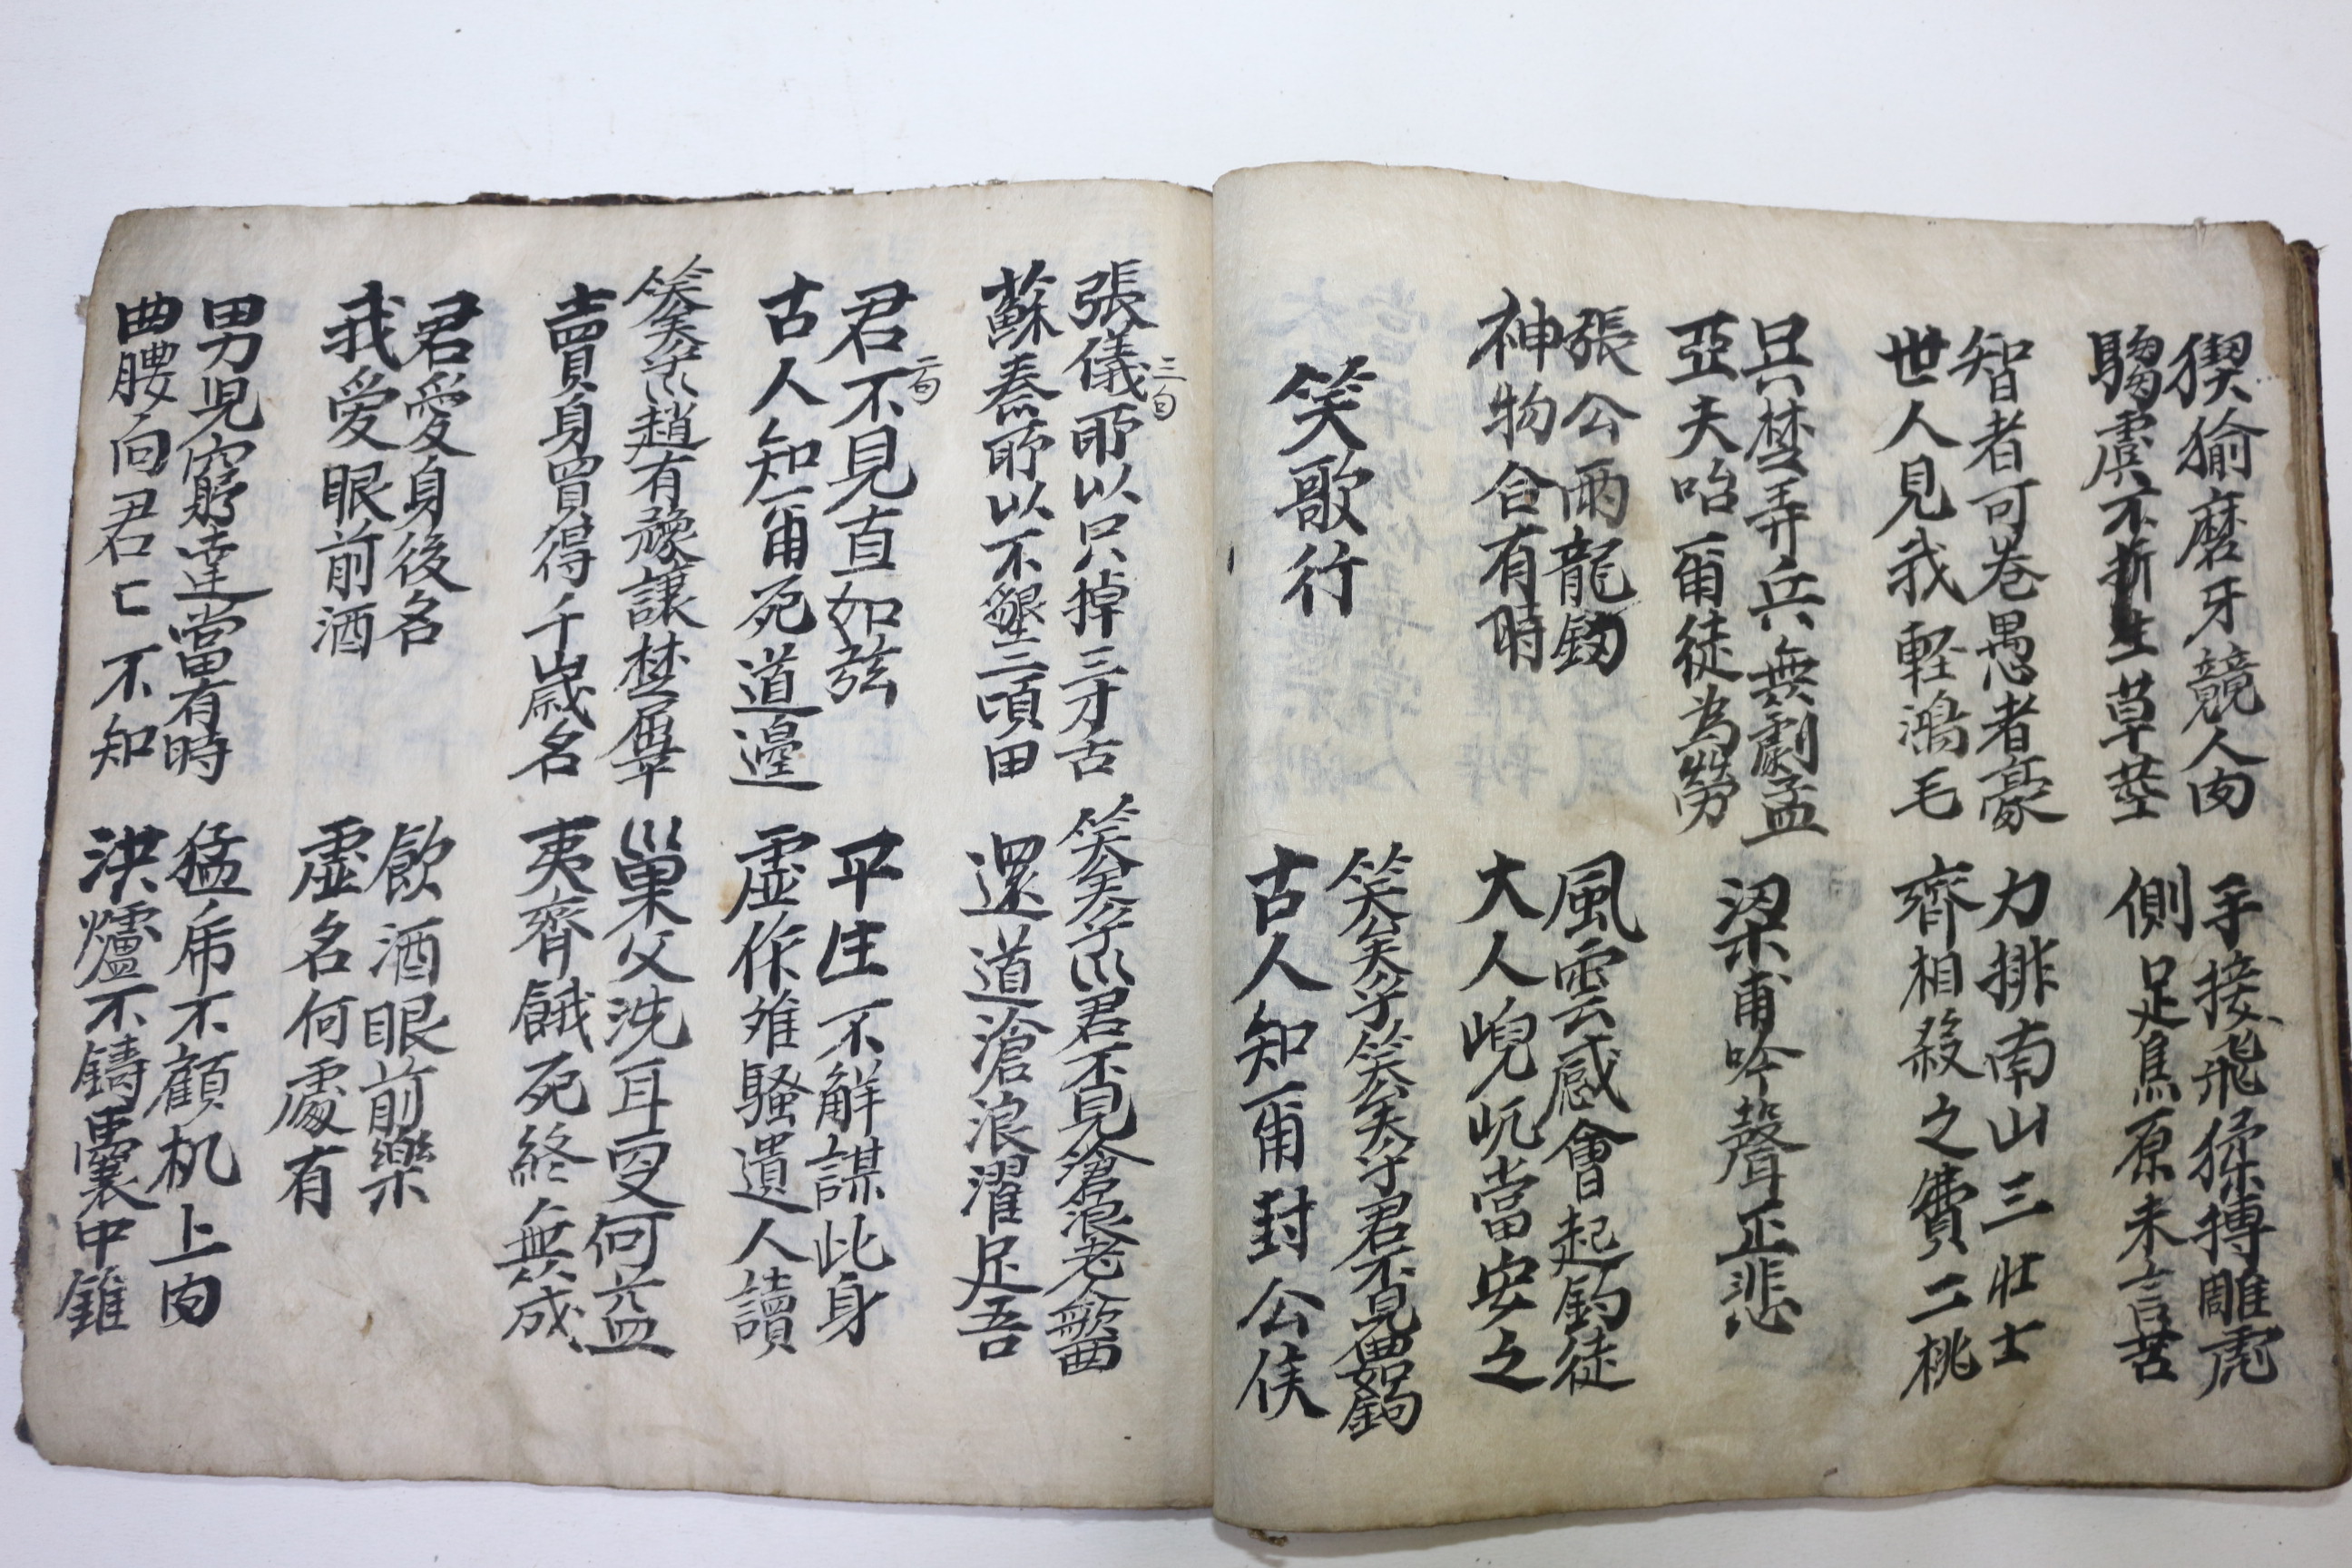 猰㺄磨牙競人肉
騶虞不折生草莖
手接飛猱搏雕虎
側足焦原未言苦
智者可卷愚者豪
世人見我輕鴻毛
力排南山三壯士
齊相殺之費二桃
吳楚弄兵無劇孟
亞夫咍爾徒為勞
梁甫吟聲正悲
張公兩龍劒
神物合有時
風雲感會起釣徒
大人峴屼當安之
笑歌行
笑矣乎笑矣乎君不見曲如鉤
古人知爾封公侯
三句
張儀所以只掉三寸舌
蘇秦所以不墾三頃田
笑矣乎〻君不見滄浪老人歌一曲
還道滄浪濯足吾
二句
君不見直如弦
古人知爾死道邊
平生不解謀此身
虛作離騷遣人讀
笑矣乎〻趙有豫讓楚屈平
賣身買得千歲名
巢父洗耳更何益
夷齊餓死終無成
君愛身後名
我愛眼前酒
飲酒眼前樂
虛名何處有
男兒窮達當有時
曲腰向君匕不知
猛虎不顧机上肉
洪爐不鑄囊中錐